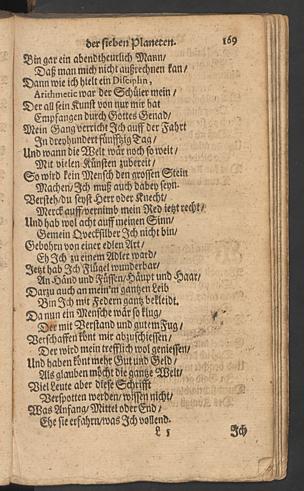 der sieben Planeten. 169
Bin gar ein abendtheurlich Mann/
Daß man mich nicht außrechnen kan/
Dann wie ich hielt ein Disciplin,
Arithmetic war der Schüler mein/
Der all sein Kunst von nur mir hat
Empfangen durch Gottes Genad/
Mein Gang verricht Ich auff der Fahrt
In dreyhundert fünfftzig Tag/
Und wann die Welt wär noch so weit/
Mit vielen Künsten zubereit/
So wird kein Mensch den grossen Stein
Machen/ Ich muß auch dabey seyn.
Versteh/ du seyst Herr oder Knecht/
Merck auff/ vernimb mein Red jetzt recht/
Und hab wol acht auff meinen Sinn/
Gemein Quecksilber Ich nicht bin/
Gebohrn von einer edlen Art/
Eh Ich zu einem Adler ward/
Jetzt hab Ich Flügel wunderbar/
An Händ und Füssen/ Häupt und Haar/
Darzu auch an mein'm gantzen Leib
Bin Ich mit Federn gantz bekleidt.
Da nun ein Mensche wär so klug/
Der mit Verstand und gutem Fug/
Verschaffen könt mir abzuschiessen/
Der wird mein trefflich wol geniessen/
Und haben könt mehr Gut und Geld/
Als glauben möcht die gantze Welt/
Viel Leute aber diese Schrifft
Verspotten werden/ wissen nicht/
Was Anfang/ Mittel oder End/
Ehe sie erfahrn/ was Ich vollend.
L 5 Ich